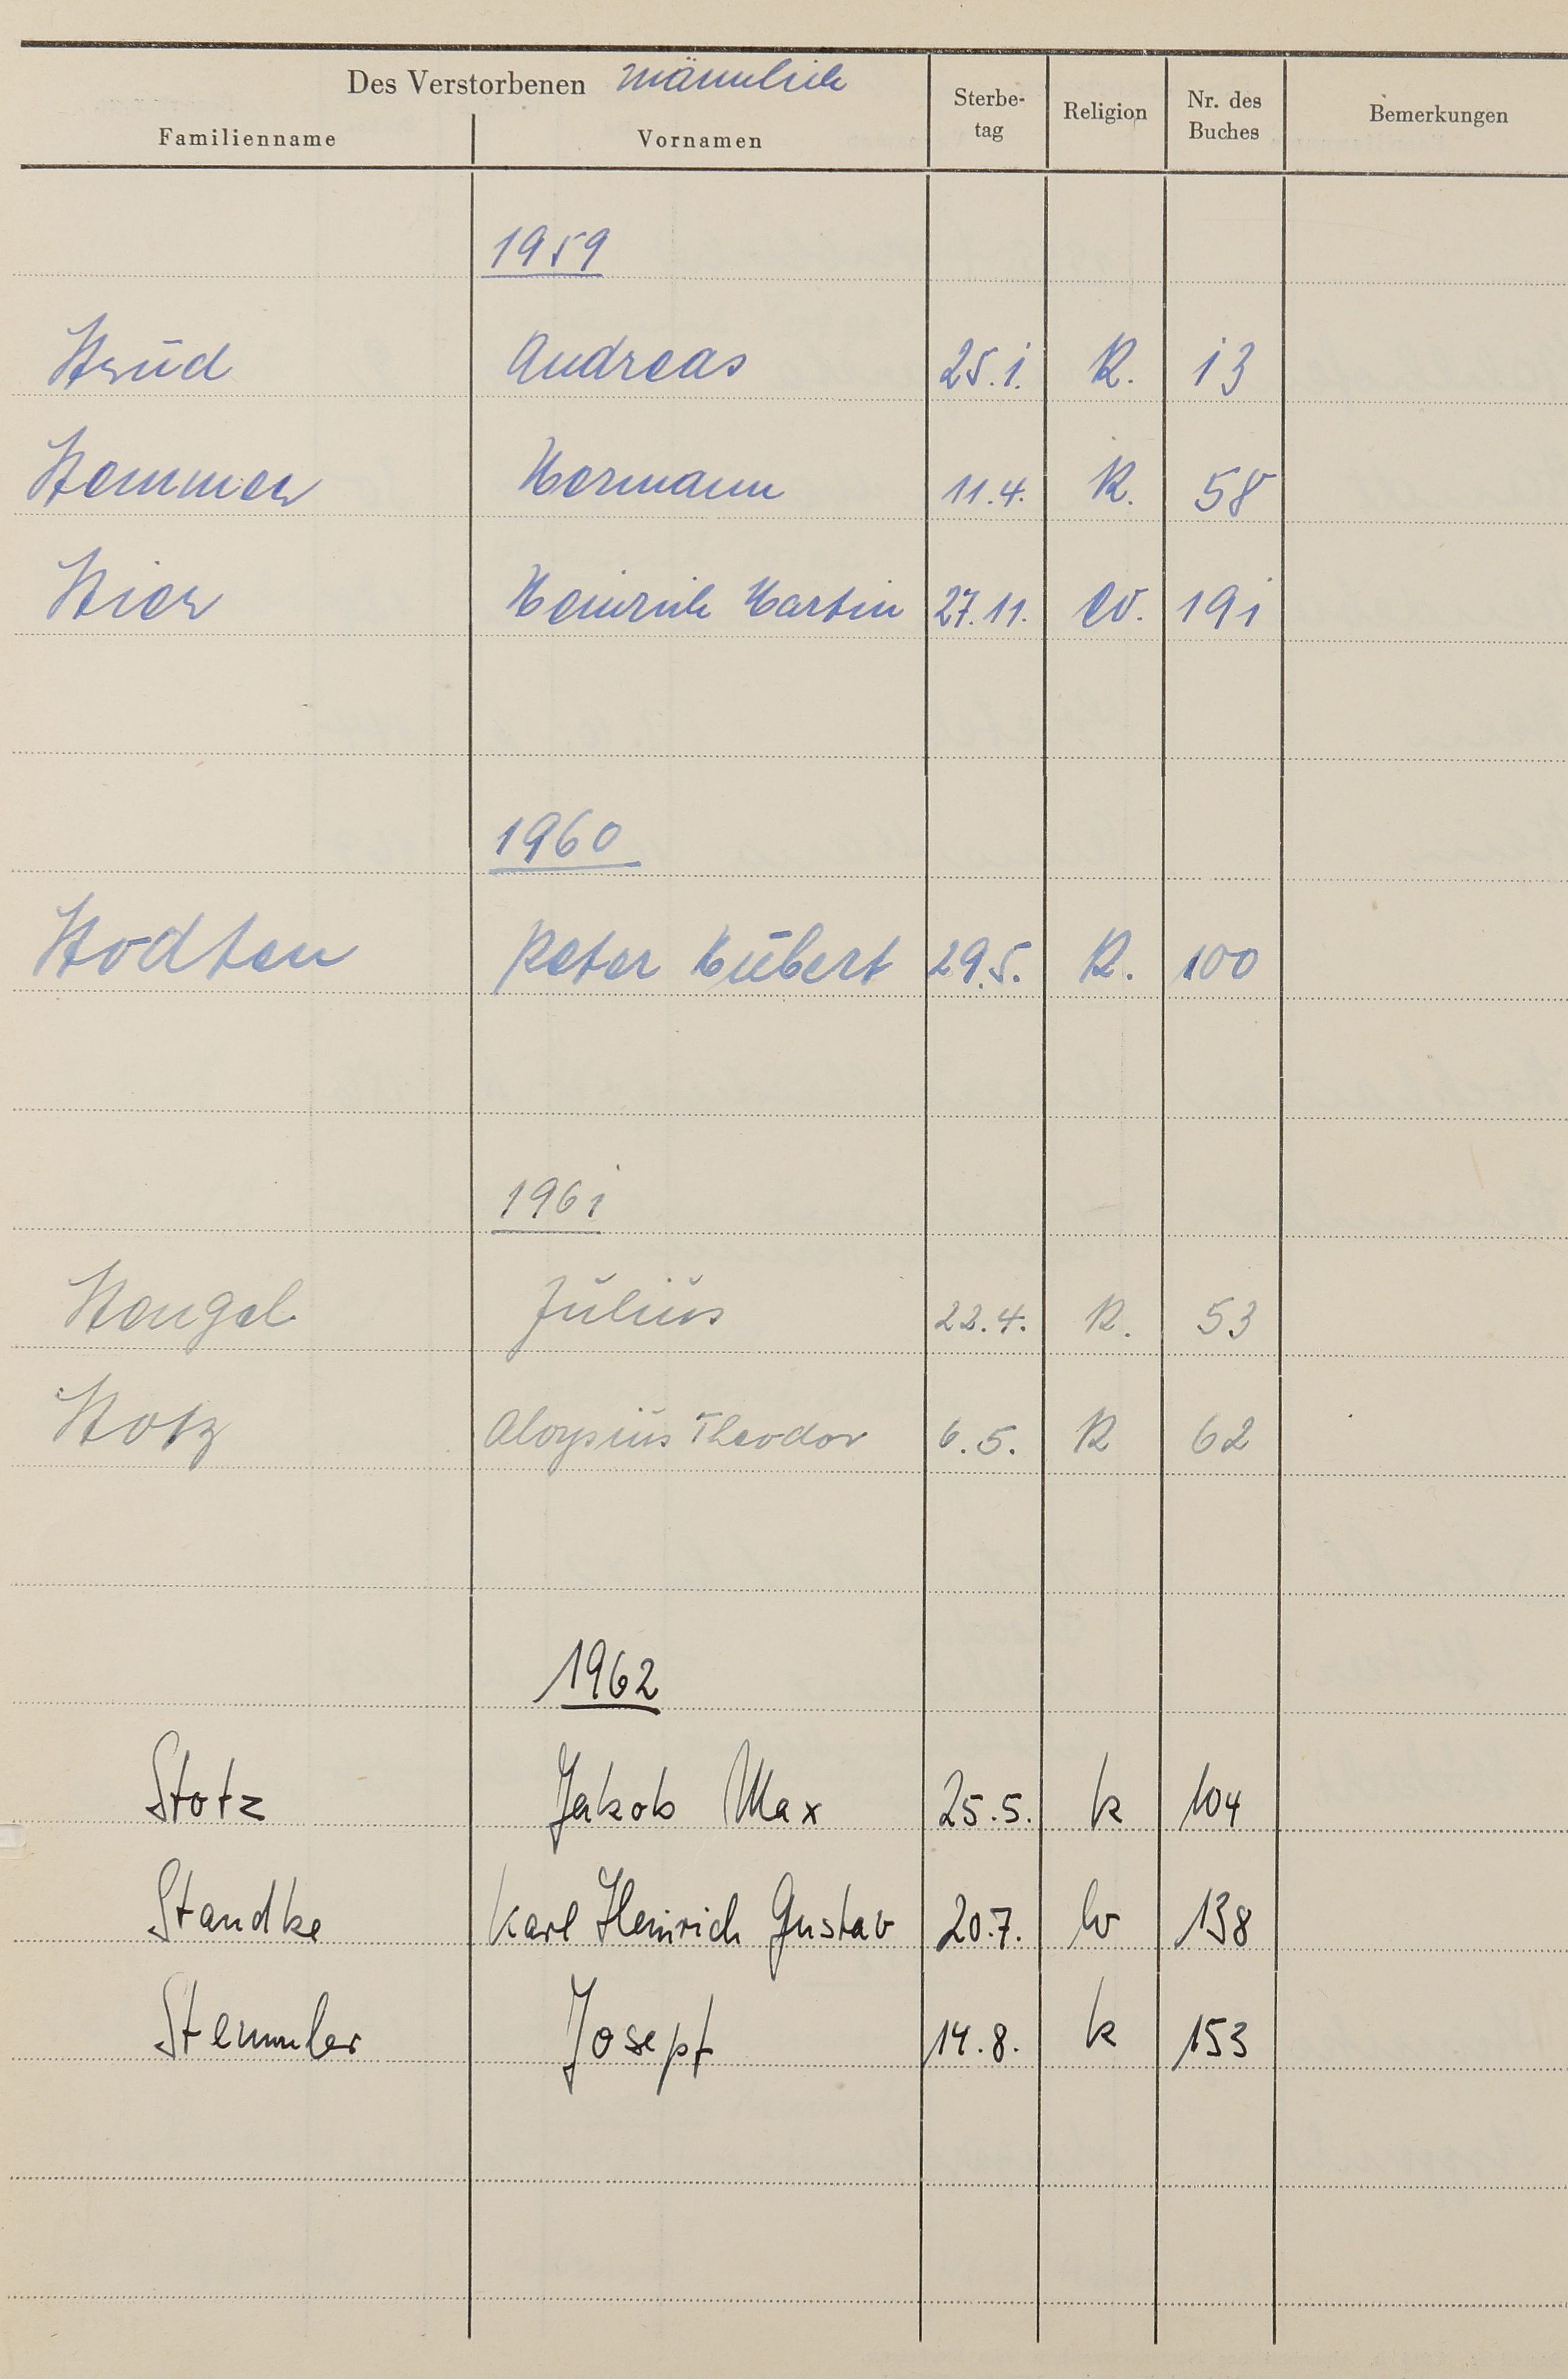 Des Verstorbenen männlich
Familienname Vornamen Sterbe-tag Religion Nr. des Buches Bemerkungen
1959
Strud Andreas 25.1. K. 13
Stemmer Hermann 11.4. K. 58
Stier Heinrich Martin 27.11. ev. 191
1960
Stodten Peter Hubert 29.5. K. 100
1961
Stengel Julius 22.4. K. 53
Stotz Aloysius Theodor 6.5. K 62
1962
Stotz Jakob Max 25.5. k 104
Standke Karl Heinrich Gustav 20.7. ev 138
Stemmler Josepf 14.8. k 153